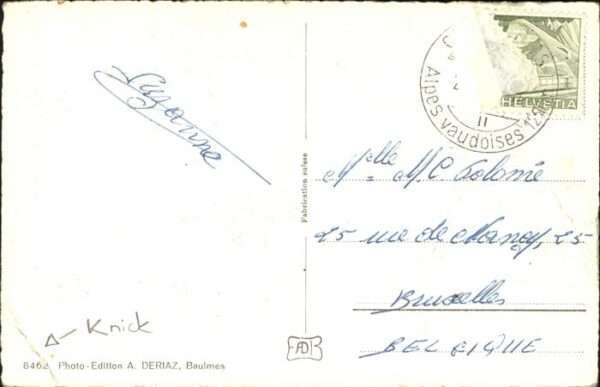 Suzanne
Knick
8462 Photo-Edition A. DERIAZ, Baulmes
Fabrication suisse
AD
HELVETIA
Alpes vaudoises
II
Melle M.C. Colomé
25 rue de Nancy, 25
Bruxelles
BELGIQUE